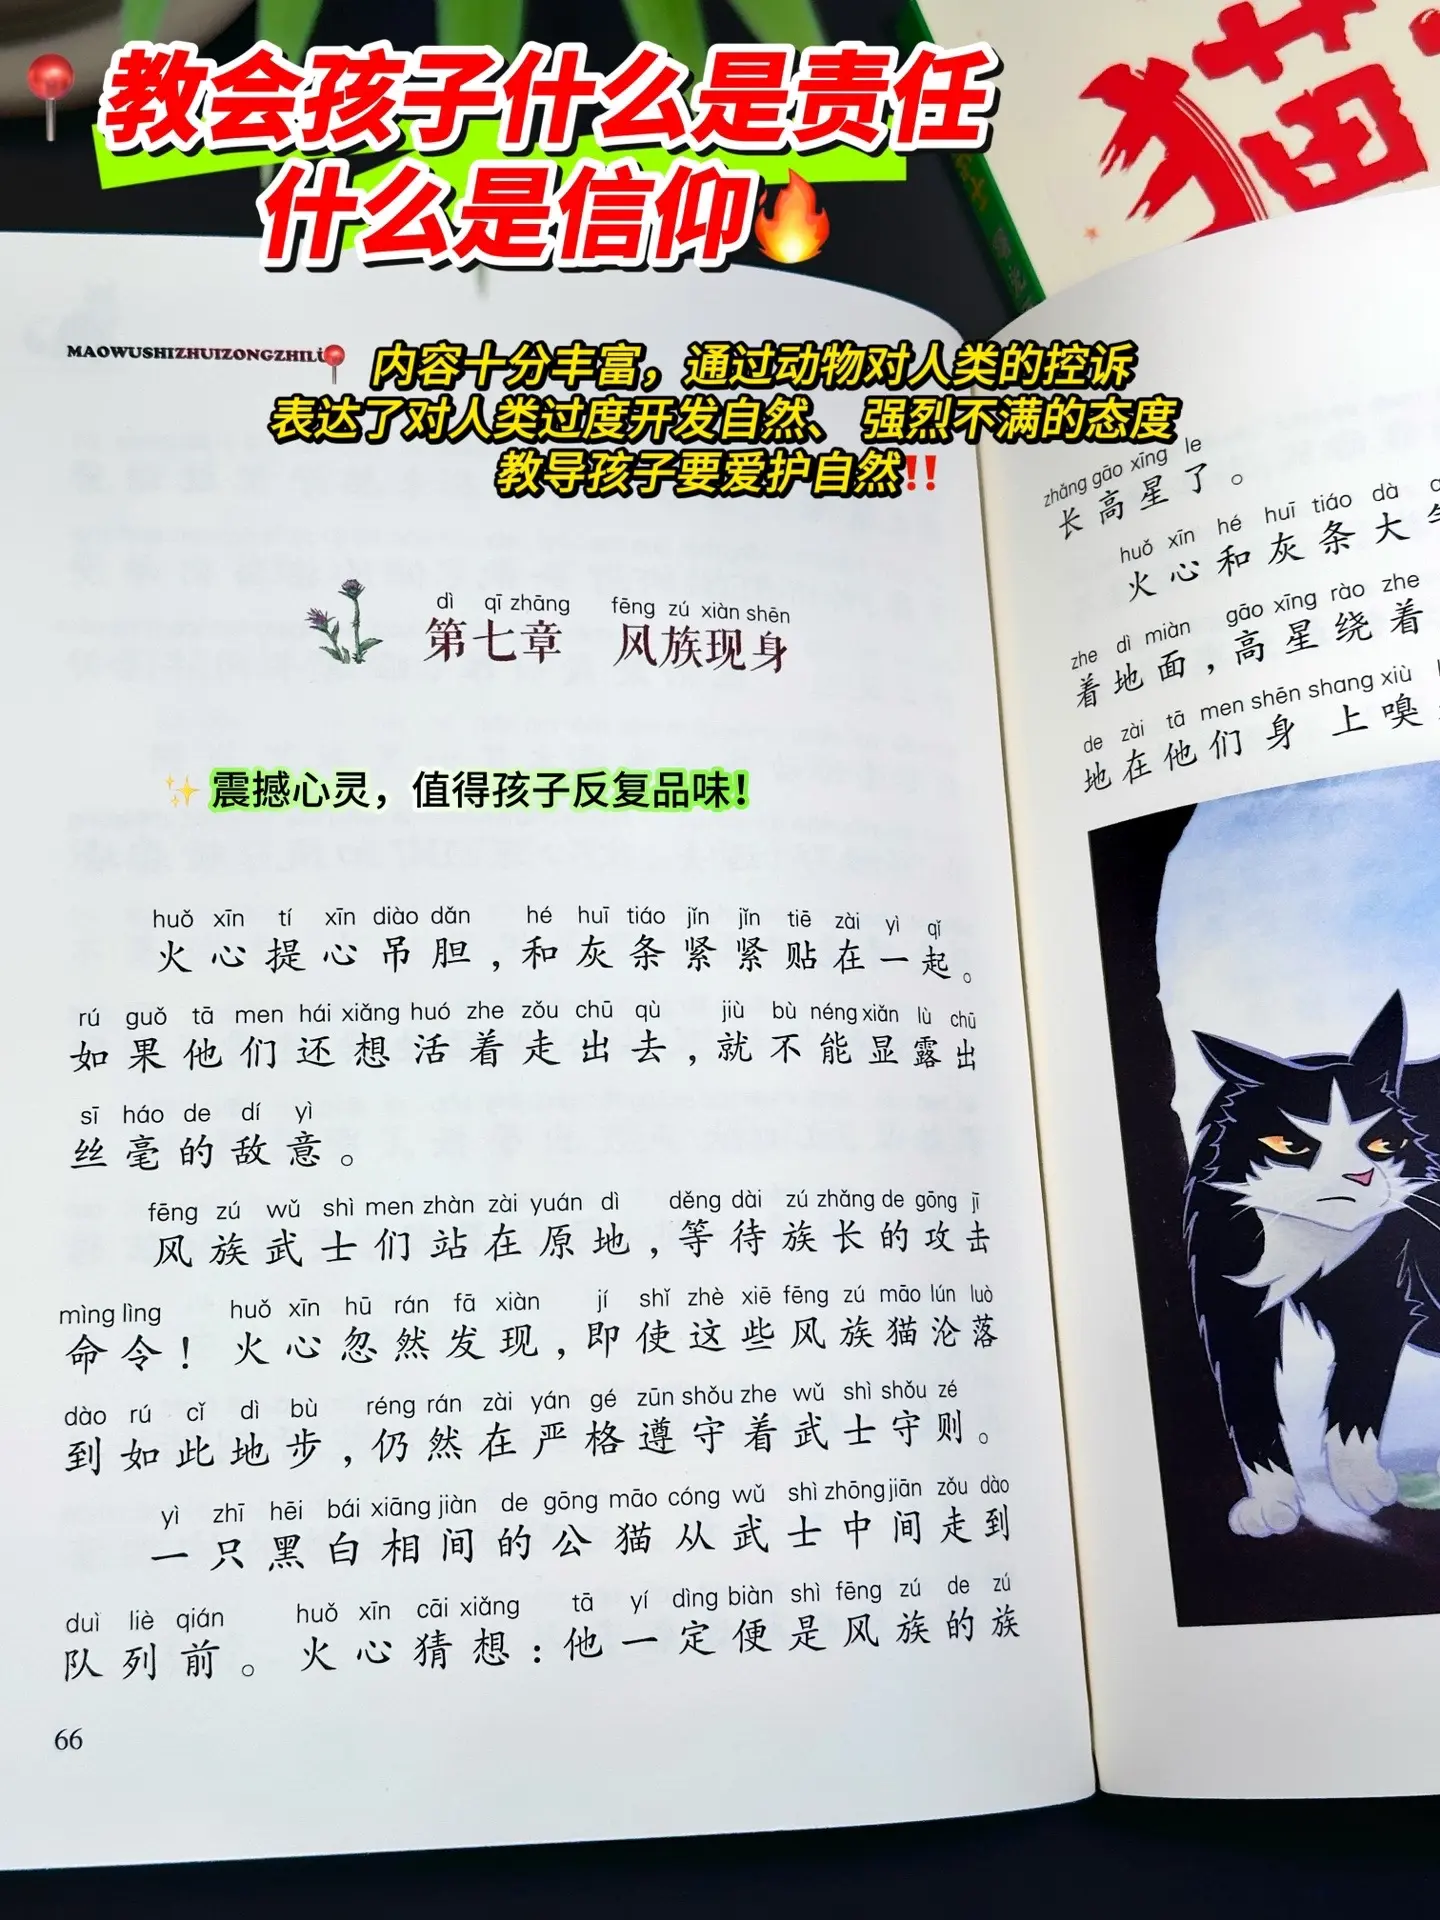 教会孩子什么是责任
什么是信仰
猫
MAOWUSHIZHUIZONGZHILU
内容十分丰富，通过动物对人类的控诉
表达了对人类过度开发自然、 强烈不满的态度
教导孩子要爱护自然!!
dì qī zhāng fēng zú xiàn shēn
第七章 风族现身
震撼心灵，值得孩子反复品味！
huǒ xīn tí xīn diào dǎn hé huī tiáo jǐn jǐn tiē zài yì qǐ
火心提心吊胆，和灰条紧紧贴在一起。
rú guǒ tā men hái xiǎng huó zhe zǒu chū qù jiù bù néng xiǎn lù chū
如果他们还想活着走出去，就不能显露出
sī háo de dí yì
丝毫的敌意。
fēng zú wǔ shì men zhàn zài yuán dì děng dài zú zhǎng de gōng jī
风族武士们站在原地，等待族长的攻击
mìng lìng huǒ xīn hū rán fā xiàn jí shǐ zhè xiē fēng zú māo lún luò
命令！火心忽然发现，即使这些风族猫沦落
dào rú cǐ dì bù réng rán zài yán gé zūn shǒu zhe wǔ shì shǒu zé
到如此地步，仍然在严格遵守着武士守则。
yì zhī hēi bái xiāng jiàn de gōng māo cóng wǔ shì zhōng jiān zǒu dào
一只黑白相间的公猫从武士中间走到
duì liè qián huǒ xīn cāi xiǎng tā yí dìng biàn shì fēng zú de zú
队列前。火心猜想：他一定便是风族的族
66
zhǎng gāo xīng le
长高星了。
huǒ xīn hé huī tiáo dà
火心和灰条大
zhe dì miàn gāo xīng rào zhe
着地面，高星绕着
de zài tā men shēn shang xiù
地在他们身上嗅